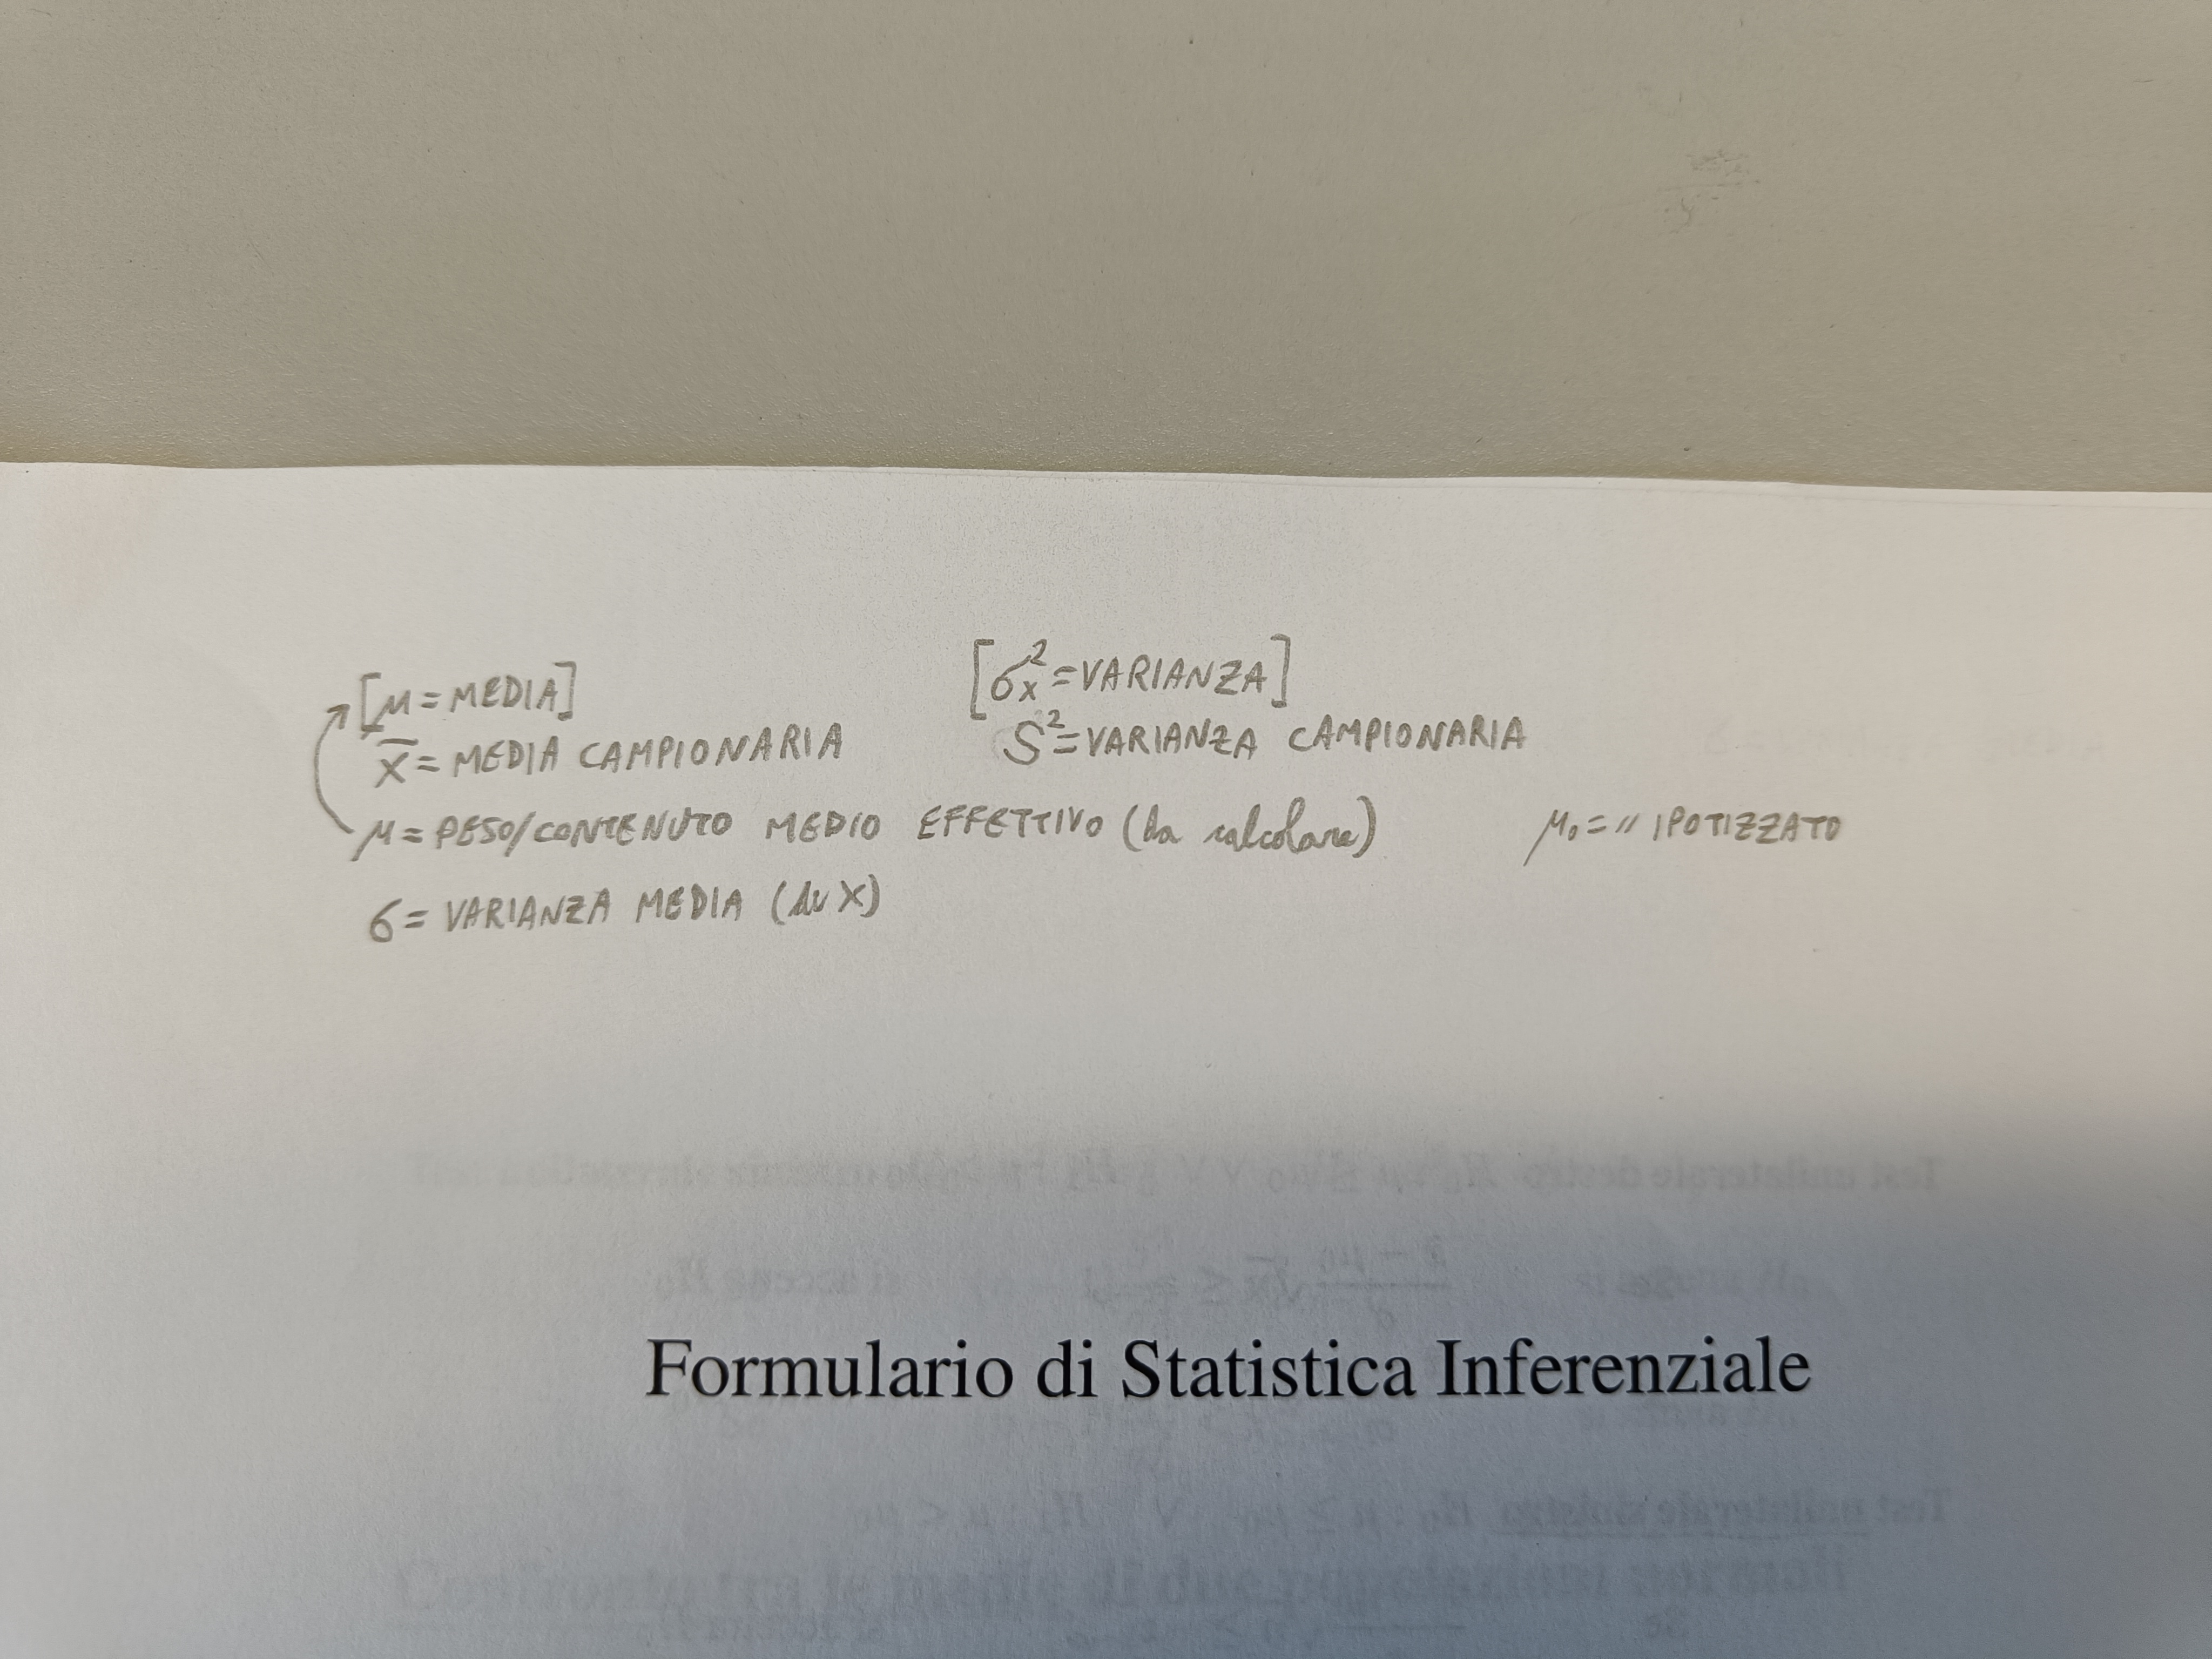 [μ = MEDIA] [σ²ₓ = VARIANZA]
x̄ = MEDIA CAMPIONARIA S² = VARIANZA CAMPIONARIA
μ = PESO/CONTENUTO MEDIO EFFETTIVO (da calcolare) μ₀ = " IPOTIZZATO
σ = VARIANZA MEDIA (di X)
Formulario di Statistica Inferenziale